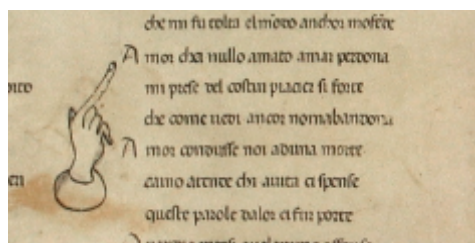 che mi fu tolta el modo anchor mofēde
Amor cha nullo amato amar perdona
mi prese del costui piacer si forte
che come uedi ancor nomabandona
Amor condusse noi aduna morte
caino atende chi auita ci spense
queste parole dalor ci fur porte